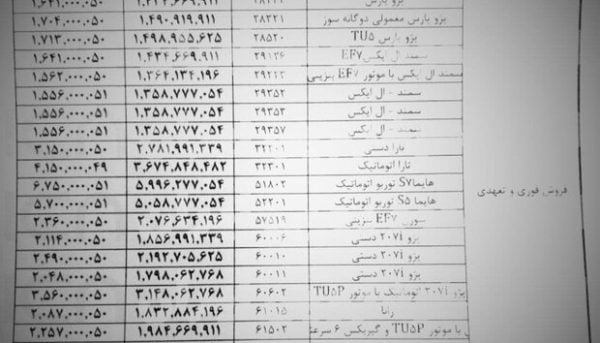 پژو پارس
پژو پارس معمولی دوگانه سوز ۲۸۲۲۱ ۱.۴۹۰.۹۱۹.۹۱۱ ۱.۷۰۴.۰۰۰.۰۵۰
پژو پارس TU۵ ۲۸۵۲۰ ۱.۴۹۸.۹۵۵.۶۲۵ ۱.۷۱۳.۰۰۰.۰۵۰
سمند ال ایکس EF۷ ۲۹۱۳۶ ۱.۴۳۴.۶۶۹.۹۱۱ ۱.۶۴۱.۰۰۰.۰۵۰
سمند ال ایکس با موتور EF۷ بنزینی ۲۹۲۱۳ ۱.۳۶۴.۱۳۴.۱۹۶ ۱.۵۶۲.۰۰۰.۰۵۰
سمند - ال ایکس ۲۹۲۵۲ ۱.۳۵۸.۷۷۷.۰۵۴ ۱.۵۵۶.۰۰۰.۰۵۱
سمند - ال ایکس ۲۹۳۵۳ ۱.۳۵۸.۷۷۷.۰۵۴ ۱.۵۵۶.۰۰۰.۰۵۱
سمند - ال ایکس ۲۹۳۵۷ ۱.۳۵۸.۷۷۷.۰۵۴ ۱.۵۵۶.۰۰۰.۰۵۱
تارا دستی ۳۲۲۰۱ ۲.۷۸۱.۹۹۱.۳۳۹ ۳.۱۵۰.۰۰۰.۰۵۰
تارا اتوماتیک ۳۲۳۰۱ ۳.۶۷۴.۸۴۸.۴۸۲ ۴.۱۵۰.۰۰۰.۰۴۹
هایما S۷ توربو اتوماتیک ۵۱۸۰۲ ۵.۹۹۶.۲۷۷.۰۵۴ ۶.۷۵۰.۰۰۰.۰۵۱
فروش فوری و تعهدی
هایما S۵ توربو اتوماتیک ۵۲۲۰۱ ۵.۰۵۸.۷۷۷.۰۵۴ ۵.۷۰۰.۰۰۰.۰۵۱
سورن EF۷ بنزینی ۵۷۵۱۹ ۲.۰۷۶.۶۳۴.۱۹۶ ۲.۳۶۰.۰۰۰.۰۵۰
پژو ۲۰۷i دستی ۶۰۰۰۶ ۱.۸۵۶.۹۹۱.۳۳۹ ۲.۱۱۴.۰۰۰.۰۵۰
پژو ۲۰۷i دستی ۶۰۰۱۰ ۲.۱۹۲.۷۰۵.۶۲۵ ۲.۴۹۰.۰۰۰.۰۵۰
پژو ۲۰۷i دستی ۶۰۰۱۱ ۱.۷۹۸.۰۶۲.۷۶۸ ۲.۰۴۸.۰۰۰.۰۵۰
پژو ۲۰۷i اتوماتیک با موتور TU۵P ۶۰۶۰۲ ۳.۱۴۸.۰۶۲.۷۶۸ ۳.۵۶۰.۰۰۰.۰۵۰
رانا ۶۱۰۱۵ ۱.۸۳۲.۸۸۴.۱۹۶ ۲.۰۸۷.۰۰۰.۰۵۰
با موتور TU۵P و گیربکس ۶ سرعته ۶۱۵۰۲ ۱.۹۸۴.۶۶۹.۹۱۱ ۲.۲۵۷.۰۰۰.۰۵۰